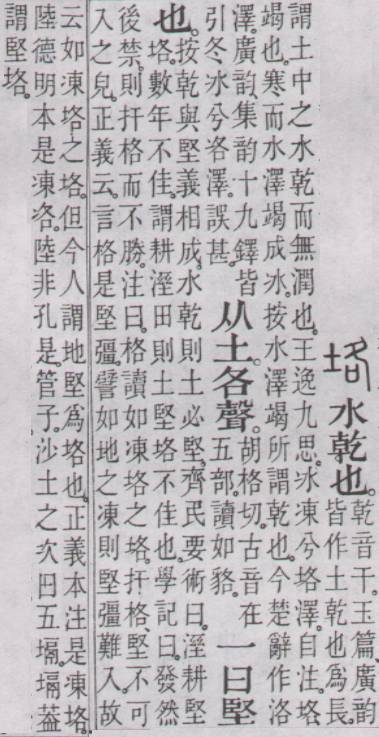 垎 水乾也。乾音干。玉篇廣韵
皆作土乾也爲長。
謂土中之水乾而無潤也。王逸九思。冰凍兮垎澤。自注。垎
竭也。寒而水澤竭成冰。按水澤竭所謂乾也。今楚辭作洛
澤。廣韵集韵十九鐸皆
引冬冰兮各澤。誤甚。
从土各聲。
胡格切。古音在
五部。讀如貉。
一曰堅
也。
按乾與堅義相成。水乾則土必堅。齊民要術曰。溼耕堅
垎。數年不佳。謂耕溼田則土堅垎不佳也。學記曰。發然
後禁。則扞格而不勝。注曰。格讀如凍垎之垎。扞格堅不可
入之皃。正義云。言格是堅彊。譬如地之凍則堅彊難入。故
云如凍垎之垎。但今人謂地堅爲垎也。正義本注是凍垎。
陸德明本是凍洛。陸非孔是。管子。沙土之次曰五塥。塥葢
謂堅垎。